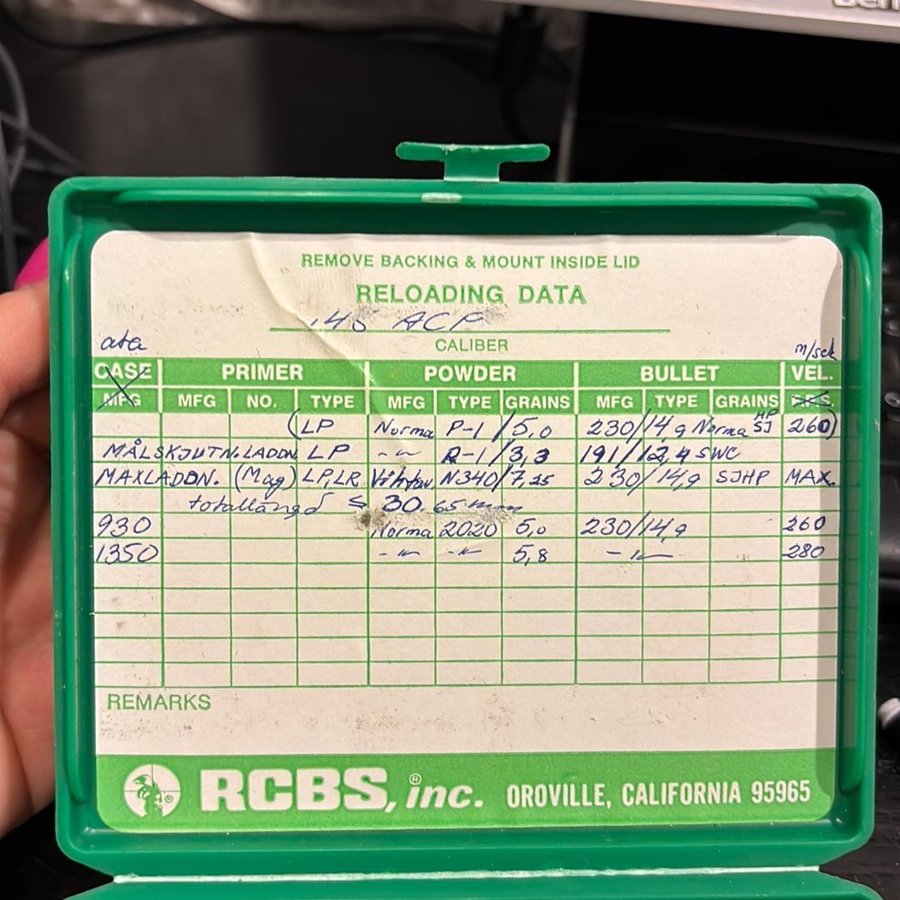 REMOVE BACKING & MOUNT INSIDE LID
RELOADING DATA
.45 ACP
CALIBER
ata m/sek
CASE PRIMER POWDER BULLET VEL.
MFG MFG NO. TYPE MFG TYPE GRAINS MFG TYPE GRAINS
(LP Norma P-1/5,0 230/14,9 Norma HP SJ 260)
MÅLSKJUTN.LADDN LP -"- R-1/3,3 191/12,4 SWC
MAXLADDN. (Mag) LP,LR N340/7,25 230/14,9 SJHP MAX.
totallängd ≤ 30.65 mm
930 Norma 2020 5,0 230/14,9 260
1350 -"- -"- 5,8 -"- 280
REMARKS
RCBS, inc.® OROVILLE, CALIFORNIA 95965